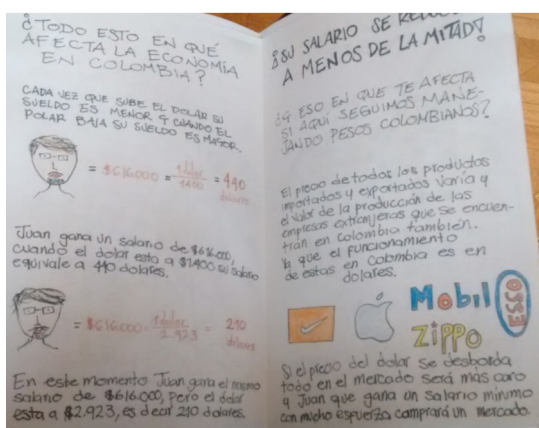 ¿TODO ESTO EN QUÉ
AFECTA LA ECONOMÍA
EN COLOMBIA?
CADA VEZ QUE SUBE EL DOLAR SU
SUELDO ES MENOR Y CUANDO EL
DOLAR BAJA SU SUELDO ES MAYOR.
= $616.000 = 1 dolar = 440
1400 dolares
Juan gana un salario de $616.000,
cuando el dolar esta a $1.400 su salario
equivale a 440 dolares.
= $616.000 = 1 dolar = 210
2.923 dolares
En este momento Juan gana el mismo
salario de $616.000, pero el dolar
esta a $2.923, es decir 210 dolares.
¡SU SALARIO SE
A MENOS DE LA MITAD!
¿Y ESO EN QUE TE AFECTA
SI AQUÍ SEGUIMOS MANE-
JANDO PESOS COLOMBIANOS?
El precio de todos los productos
importados y exportados varía y
el valor de la producción de las
empresas extranjeras que se encuen-
tran en Colombia también.
Ya que el funcionamiento
de estas en Colombia es en
dolares.
Mobil
ESSO
ZIPPO
Si el precio del dolar se desborda
todo en el mercado será más caro
y Juan que gana un salario mínimo
con mucho esfuerzo comprará un mercado.